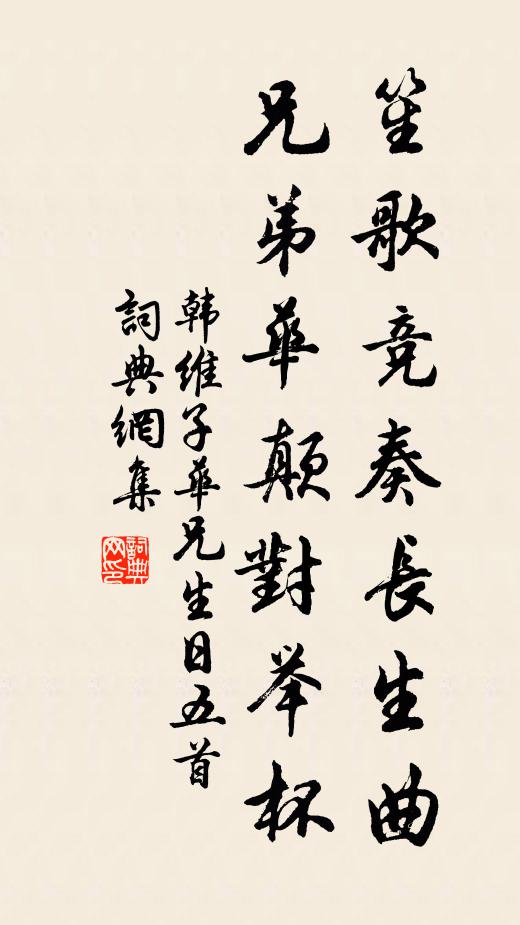 笙歌竞奏長生曲
兄弟華颠對举杯
韩维子華兄生日五首
詞典網集
詞典网印